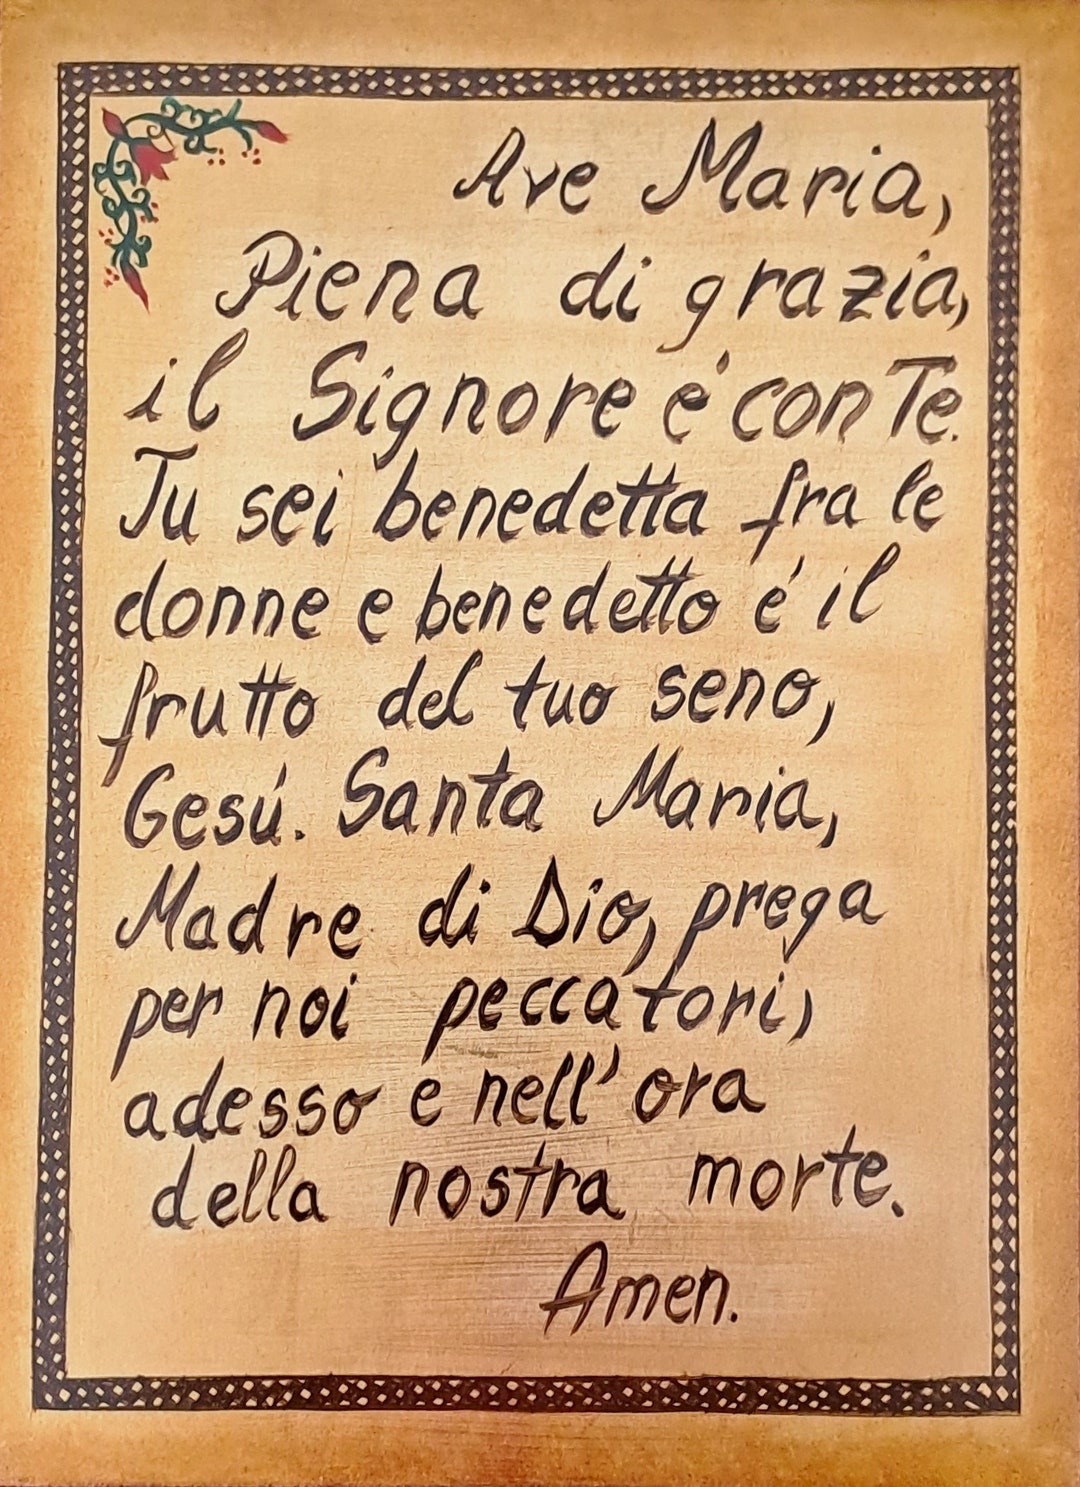 Ave Maria,
Piena di grazia,
il Signore é con Te.
Tu sei benedetta fra le
donne e benedetto é il
frutto del tuo seno,
Gesú. Santa Maria,
Madre di Dio, prega
per noi peccatori,
adesso e nell'ora
della nostra morte.
Amen.